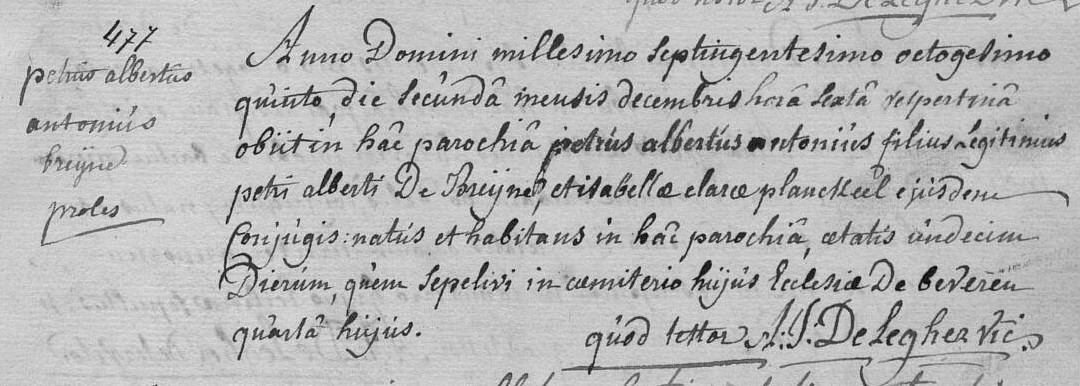 477
petrus albertus
antonius
breijne
proles
Anno Domini millesimo septingentesimo octogesimo
quinto, die secunda mensis decembris hora sexta vespertina
obiit in hac parochia petrus albertus antonius filius legitimus
petri alberti De Breijne, et isabellæ claræ planckeel ejusdem
Conjugis: natus et habitans in hac parochia, ætatis undecim
Dierum, quem sepelivi in cæmiterio hujus Ecclesiæ De beveren
quarta hujus. quod testor A: J: De Legher vic: